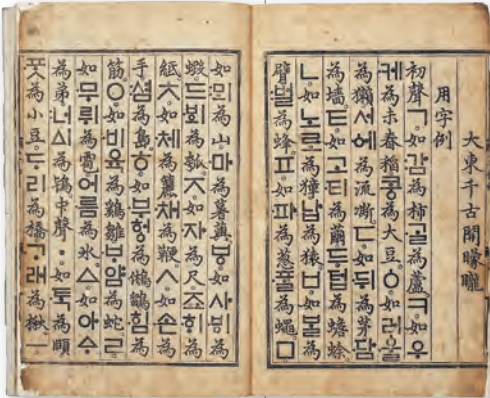 大東千古開矇矓
用字例
初聲ㄱ。如감為柿。ᄀᆞᆯ為蘆。ㅋ。如우
케為未舂稻。콩為大豆。ㆁ。如러울
為獺。서ᅌᅦ為流凘。ㄷ。如뒤為茅。담
為墻。ㅌ。如고티為繭。두텁為蟾蜍。
ㄴ。如노로為獐。납為猿。ㅂ。如ᄇᆞᆯ為
臂。벌為蜂。ㅍ。如파為葱。ᄑᆞᆯ為蠅。ㅁ。
如뫼為山。마為薯藇。ㅸ。如사ᄫᅵ為
蝦。드ᄫᅴ為瓠。ㅈ。如자為尺。죠ᄒᆡ為
紙。ㅊ。如체為籭。채為鞭。ㅅ。如손為
手。셤為島。ㅎ。如부헝為鵂鶹。힘為
筋。ㅇ。如비육為鷄雛。ᄇᆞ얌為蛇。ㄹ。
如무뤼為雹。어름為氷。ㅿ。如아ᅀᆞ
為弟。너ᅀᅵ為鴇。中聲ㆍ。如ᄐᆞᆨ為頤。
ᄑᆞᆺ為小豆。ᄃᆞ리為橋。ᄀᆞ래為楸。ㅡ